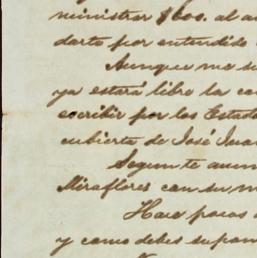 ministrar $600. al a
darte por entendido
Aunque me su
ya estará libre la co
escribir por los Estado
cubierta de José Juan
Segun te anun
Miraflores con su m
Hace pocos
y como debes supon